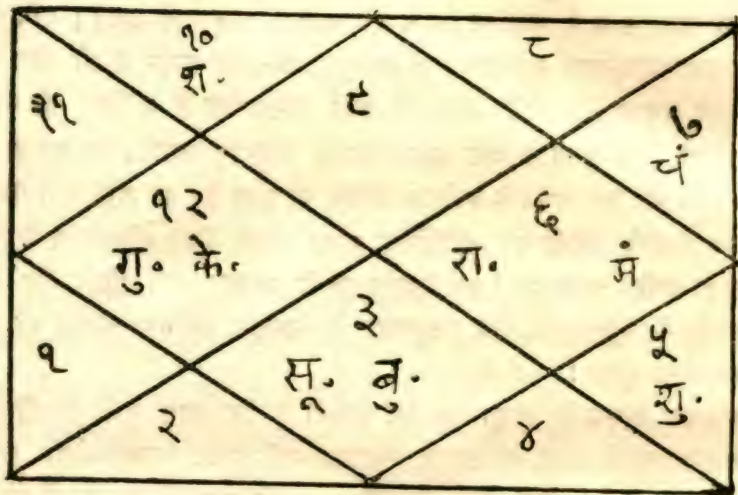 १०
श.
९
८
११
७
चं
१२
गु. के.
६
रा. मं
३
सू. बु.
१
५
शु.
२
४